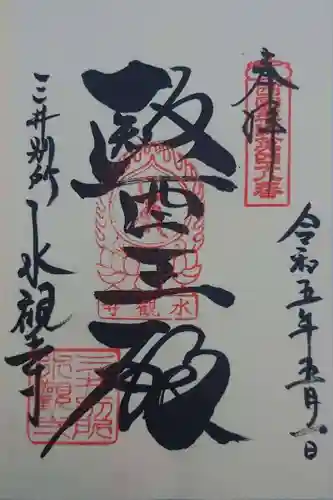 奉拝
西国薬師第四十八番
令和五年五月一日
醫王殿
水観寺
三井別所
水観寺
三井別所
水観寺